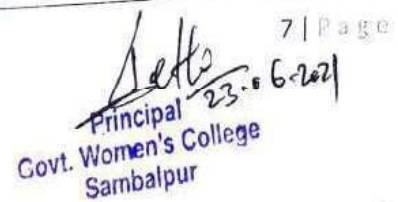 7 | Page
23.06.2021
Principal
Govt. Women's College
Sambalpur